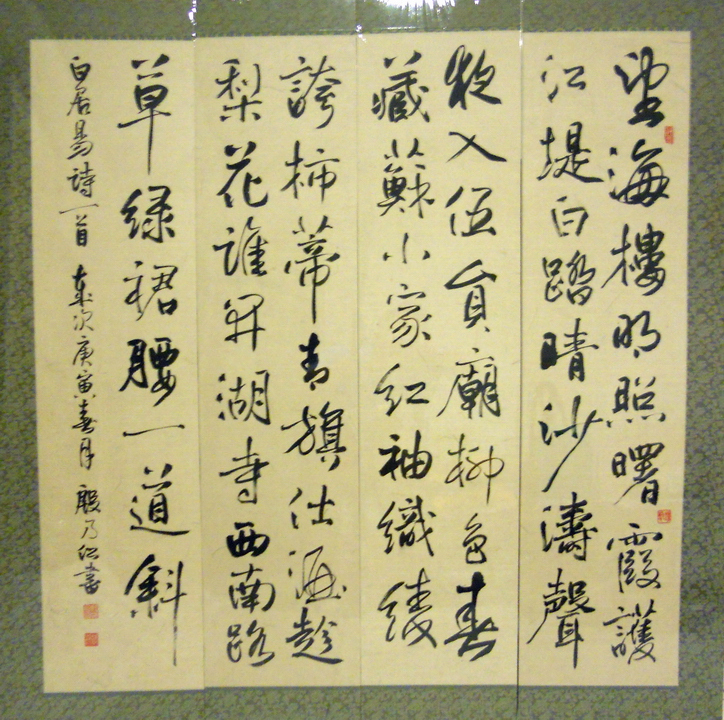 望海樓明照曙霞護
江堤白踏晴沙濤聲
夜入伍員廟柳色春
藏蘇小家紅袖織綾
誇柿蒂青旗沽酒趁
梨花誰開湖寺西南路
草綠裙腰一道斜
白居易詩一首 歲次庚寅春月 殷乃書